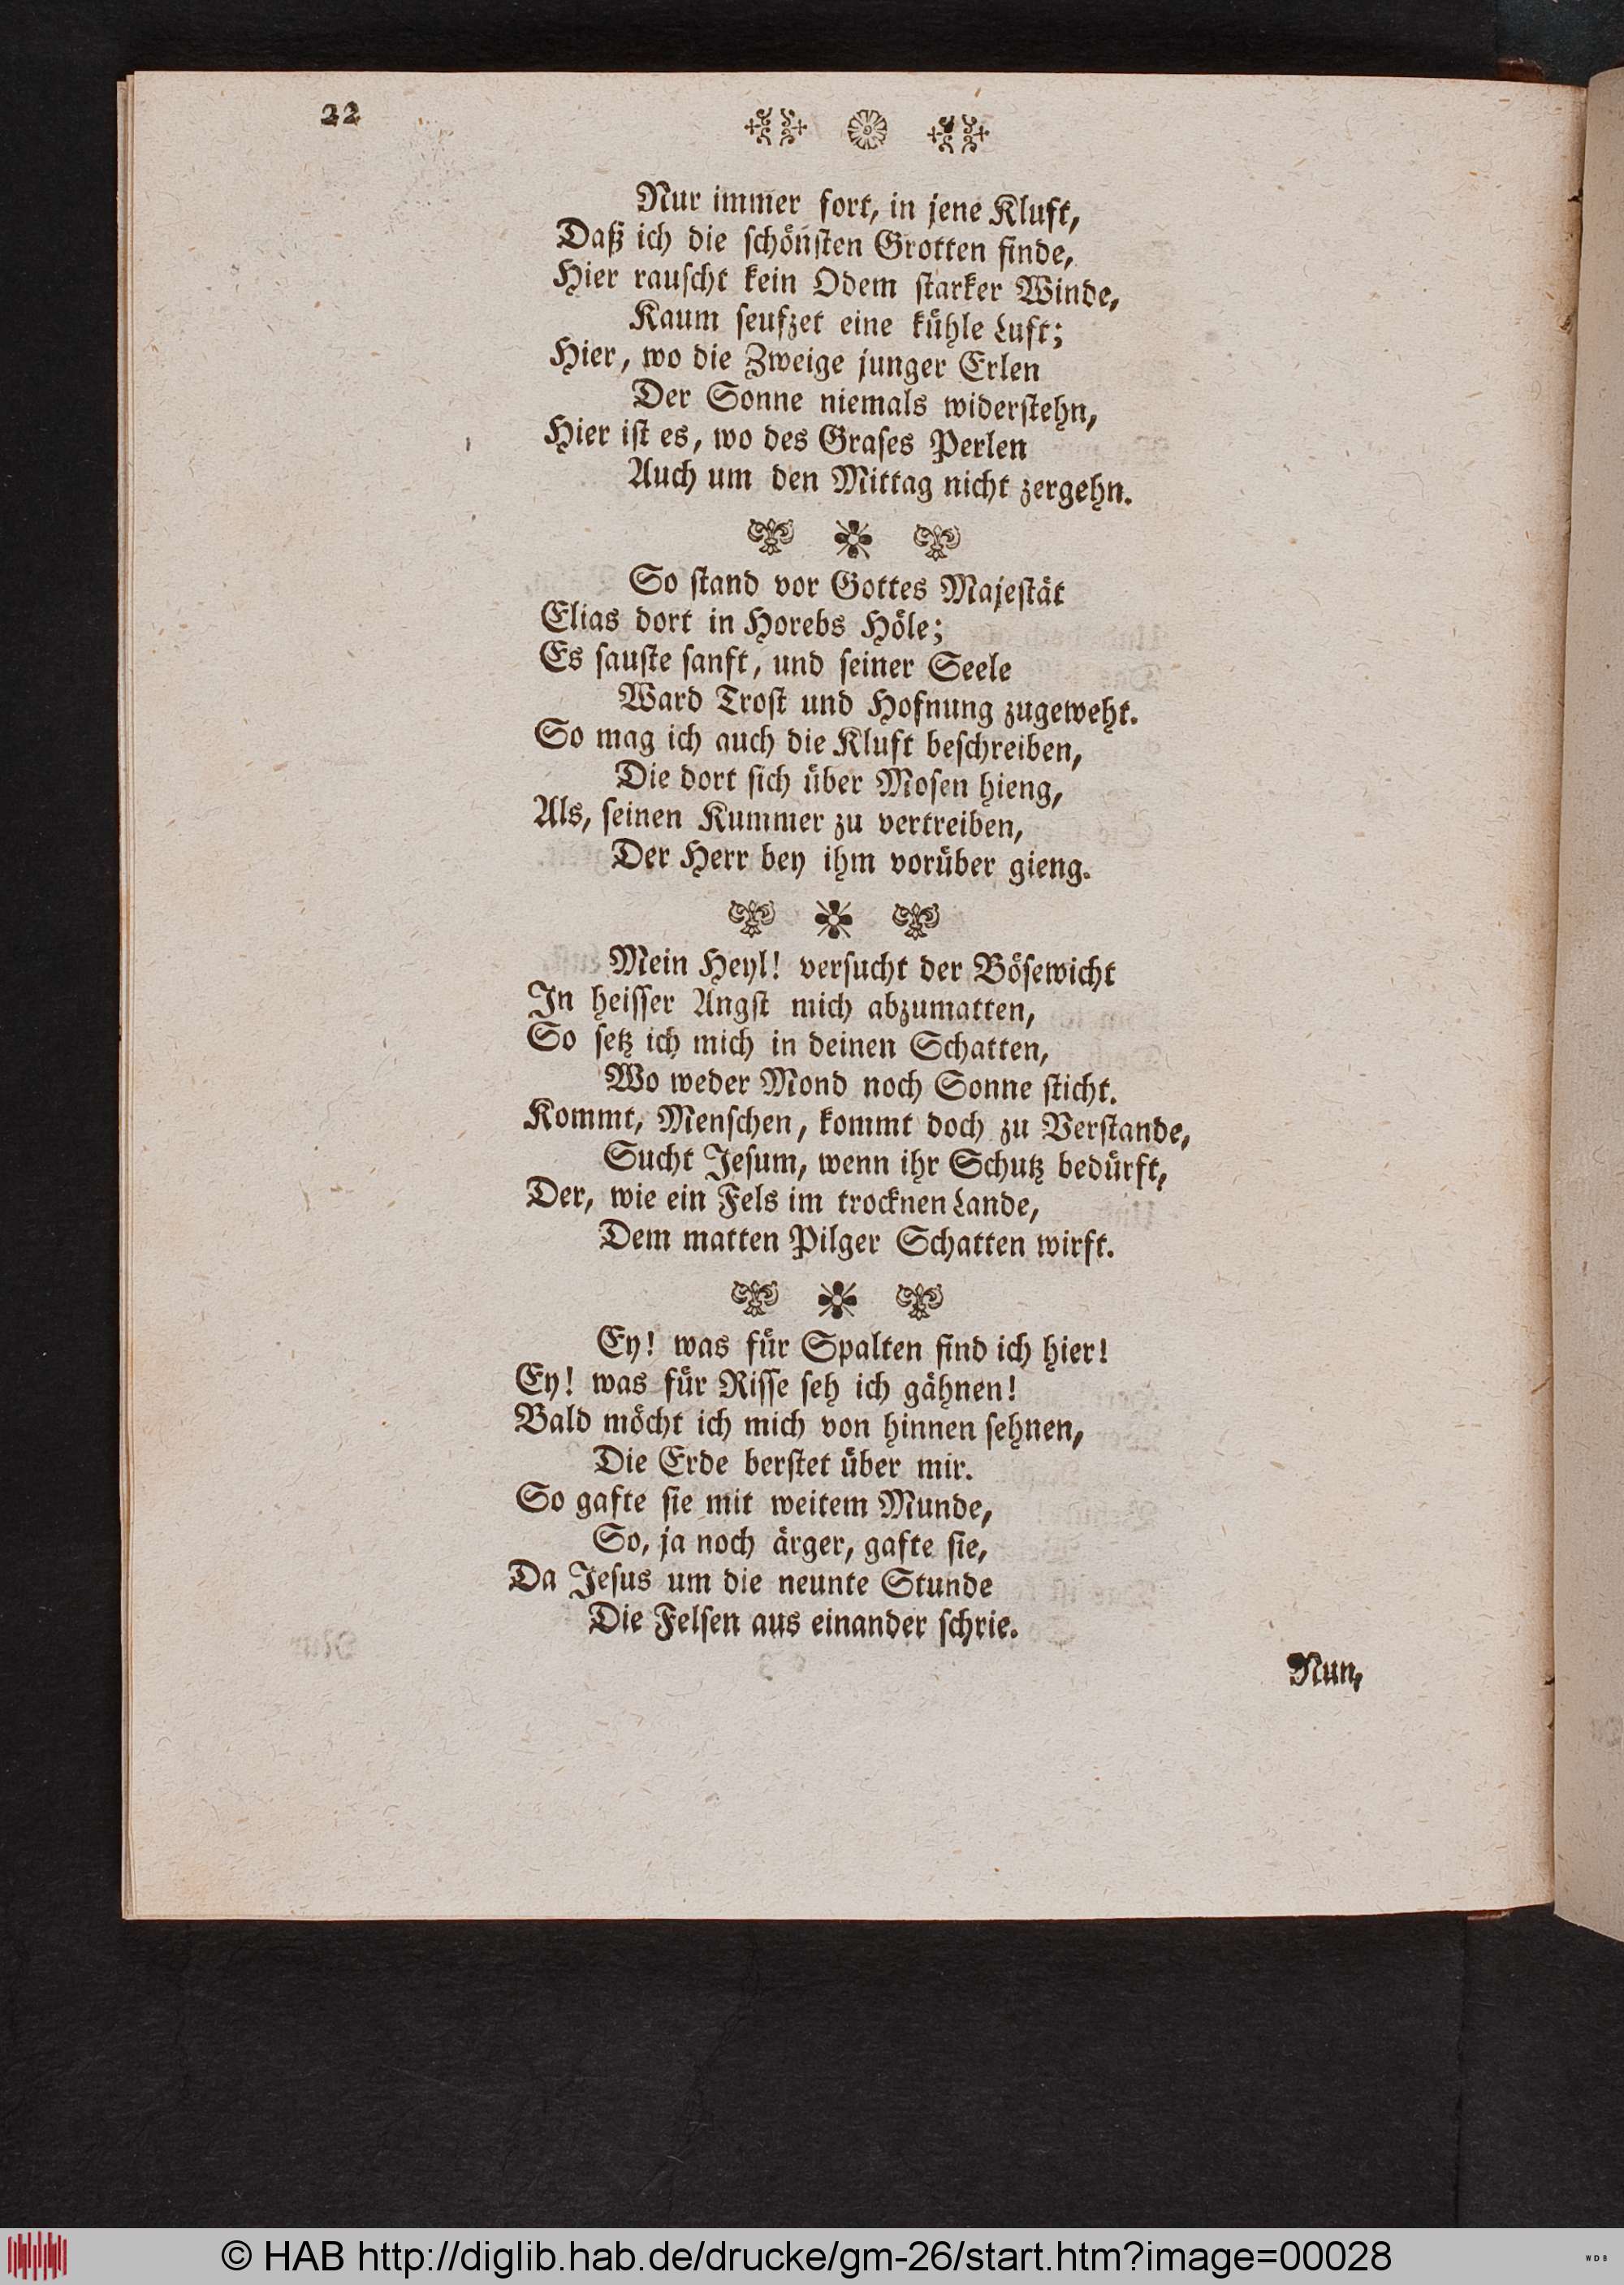 22
Nur immer fort, in jene Kluft,
Daß ich die ſchönſten Grotten finde,
Hier rauſcht kein Odem ſtarker Winde,
Kaum ſeufzet eine kühle Luft;
Hier, wo die Zweige junger Erlen
Der Sonne niemals widerſtehn,
Hier iſt es, wo des Graſes Perlen
Auch um den Mittag nicht zergehn.
So ſtand vor Gottes Majeſtät
Elias dort in Horebs Höle;
Es ſauſte ſanft, und ſeiner Seele
Ward Troſt und Hofnung zugeweht.
So mag ich auch die Kluft beſchreiben,
Die dort ſich über Moſen hieng,
Als, ſeinen Kummer zu vertreiben,
Der Herr bey ihm vorüber gieng.
Mein Heyl! verſucht der Böſewicht
In heiſſer Angſt mich abzumatten,
So ſetz ich mich in deinen Schatten,
Wo weder Mond noch Sonne ſticht.
Kommt, Menſchen, kommt doch zu Verſtande,
Sucht Jeſum, wenn ihr Schutz bedürft,
Der, wie ein Fels im trocknen Lande,
Dem matten Pilger Schatten wirft.
Ey! was für Spalten find ich hier!
Ey! was für Riſſe ſeh ich gähnen!
Bald möcht ich mich von hinnen ſehnen,
Die Erde berſtet über mir.
So gafte ſie mit weitem Munde,
So, ja noch ärger, gafte ſie,
Da Jeſus um die neunte Stunde
Die Felſen aus einander ſchrie.
Nun,
© HAB http://diglib.hab.de/drucke/gm-26/start.htm?image=00028
WDB